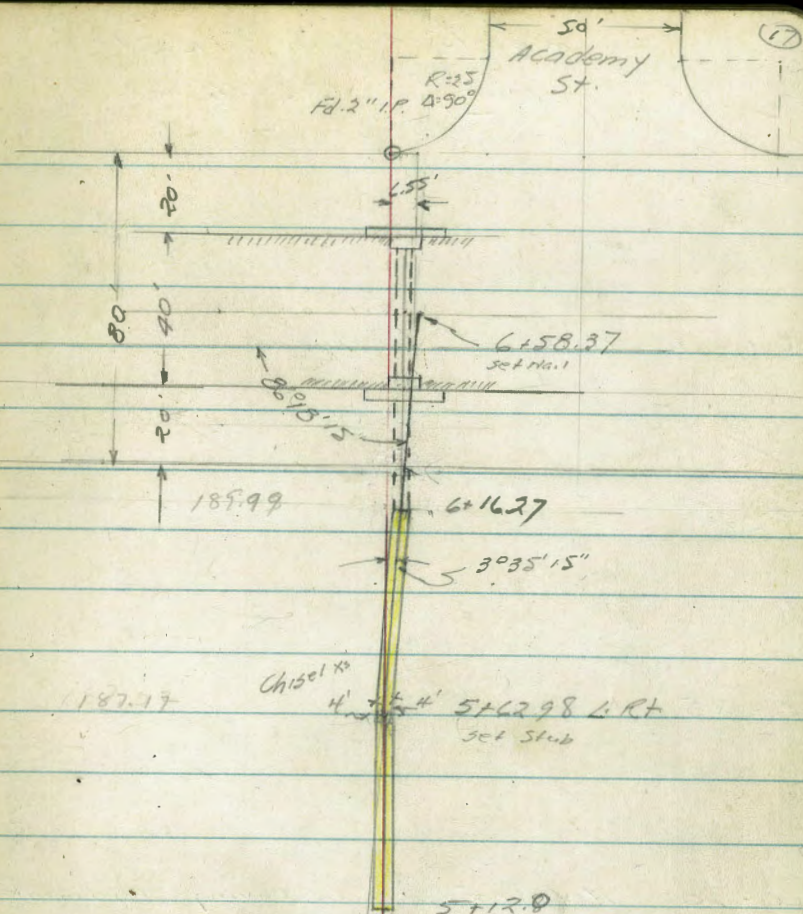 50'
17
Academy
St.
R=25
Δ=90°
Fd. 2" I.P.
20'
6.55'
80'
40'
6+58.37
set Nail
86°18'15
20'
189.99
6+16.27
3°35'15"
Chisel Xs
187.17
4' 4' 5+62.98 ∠ Rt
set stub
5+12.8